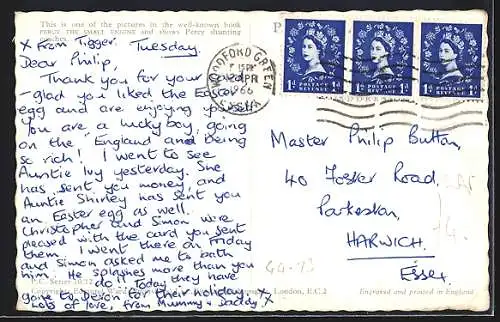 This is one of the pictures in the well-known book
PERCY THE SMALL ENGINE and shows Percy shunting
coaches.
x From Tigger.
Tuesday.
Dear Philip,
Thank you for your card
- glad you liked the Easter
egg and are enjoying yourself
You are a lucky boy, going
on the "England" and being
so rich! I went to see
Auntie Ivy yesterday. She
has sent you money, and
Auntie Shirley has sent you
an Easter egg as well.
Christopher and Simon were
pleased with the card you sent
them. I went there on Friday
and Simon asked me to bath
him. He splashes more than you
do! Today they have
gone to Devon for their holiday
x Lots of love, from Mummy & Daddy x
P.C. Series 10/12
London, E.C.2
Engraved and printed in England
WOODFORD GREEN
15 PM
APR
1966
ESSEX
1d POSTAGE REVENUE 1d
1d POSTAGE REVENUE 1d
1d POSTAGE REVENUE 1d
Master Philip Button,
40 Foster Road,
Parkeston,
HARWICH.
Essex.